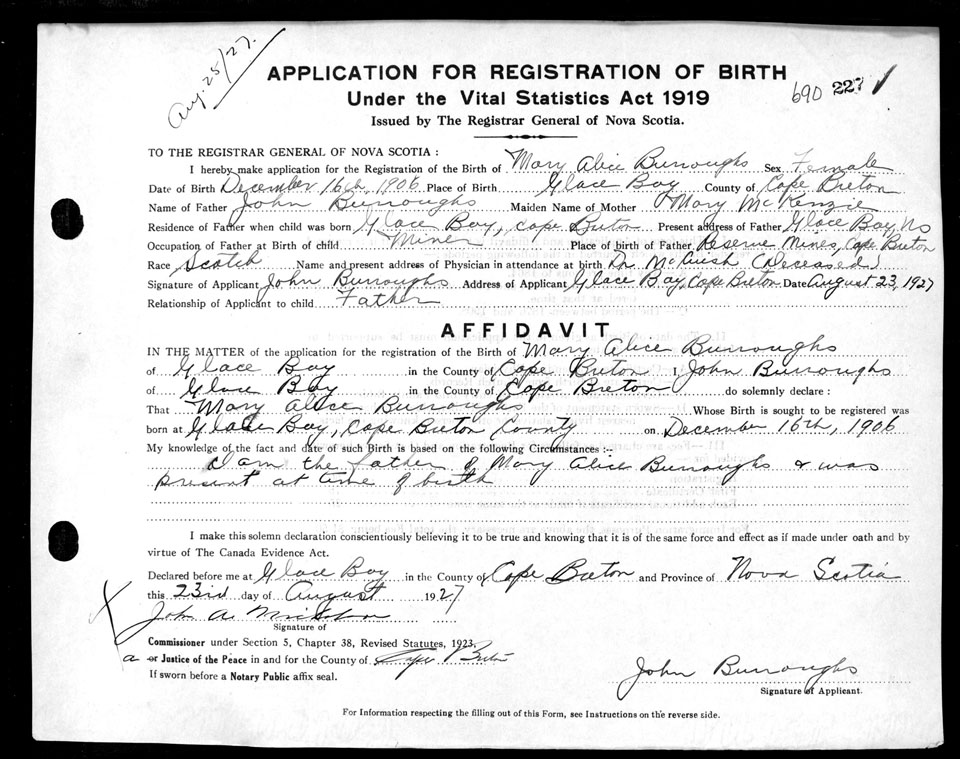 Aug. 25/27.
APPLICATION FOR REGISTRATION OF BIRTH
Under the Vital Statistics Act 1919
690 227
Issued by The Registrar General of Nova Scotia.
TO THE REGISTRAR GENERAL OF NOVA SCOTIA :
I hereby make application for the Registration of the Birth of Mary Alice Burroughs Sex Female
Date of Birth December 16th, 1906 Place of Birth Glace Bay County of Cape Breton
Name of Father John Burroughs Maiden Name of Mother Mary McKenzie
Residence of Father when child was born Glace Bay, Cape Breton Present address of Father Glace Bay, NS
Occupation of Father at Birth of child Miner Place of birth of Father Reserve Mines, Cape Breton
Race Scotch Name and present address of Physician in attendance at birth Dr. (Deceased)
Signature of Applicant John Burroughs Address of Applicant Glace Bay, Cape Breton Date August 23, 1927
Relationship of Applicant to child Father
AFFIDAVIT
IN THE MATTER of the application for the registration of the Birth of Mary Alice Burroughs
of Glace Bay in the County of Cape Breton I, John Burroughs
of Glace Bay in the County of Cape Breton do solemnly declare :
That Mary Alice Burroughs Whose Birth is sought to be registered was
born at Glace Bay, Cape Breton County on December 16th, 1906
My knowledge of the fact and date of such Birth is based on the following Circumstances :-
I am the father of Mary Alice Burroughs & was
present at time of birth
I make this solemn declaration conscientiously believing it to be true and knowing that it is of the same force and effect as if made under oath and by
virtue of The Canada Evidence Act.
Declared before me at Glace Bay in the County of Cape Breton and Province of Nova Scotia
this 23rd day of August 1927
John A.
Signature of
Commissioner under Section 5, Chapter 38, Revised Statutes, 1923,
a or Justice of the Peace in and for the County of Cape Breton
If sworn before a Notary Public affix seal.
John Burroughs
Signature of Applicant.
For Information respecting the filling out of this Form, see Instructions on the reverse side.